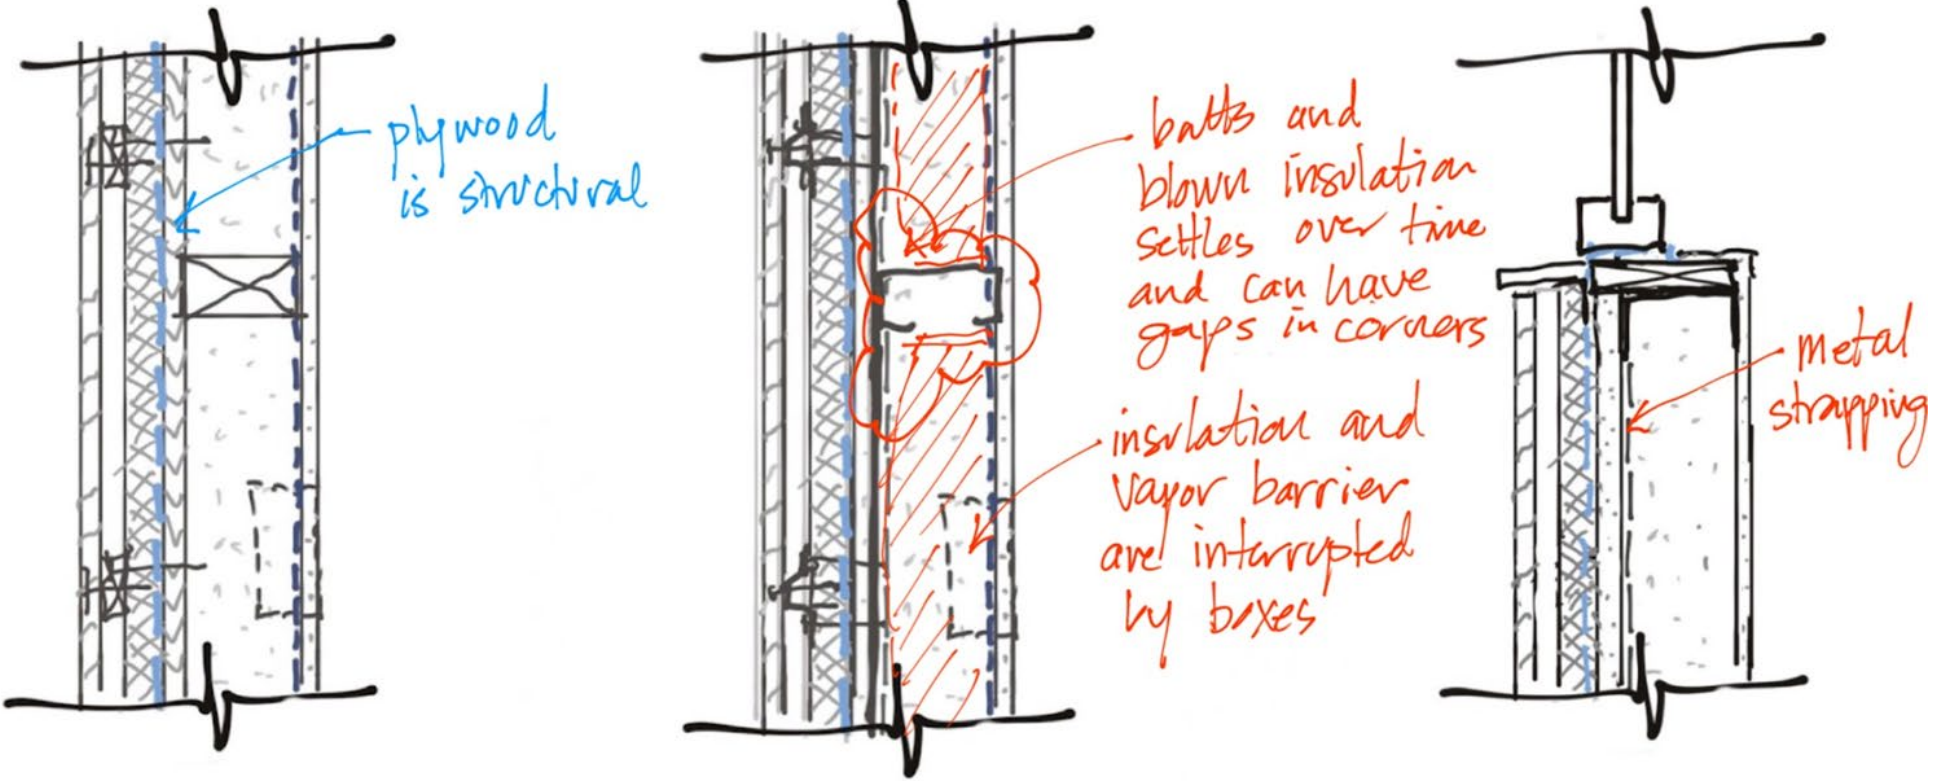 plywood
is structural
batts and
blown insulation
settles over time
and can have
gaps in corners
insulation and
vapor barrier
are interrupted
by boxes
metal
strapping